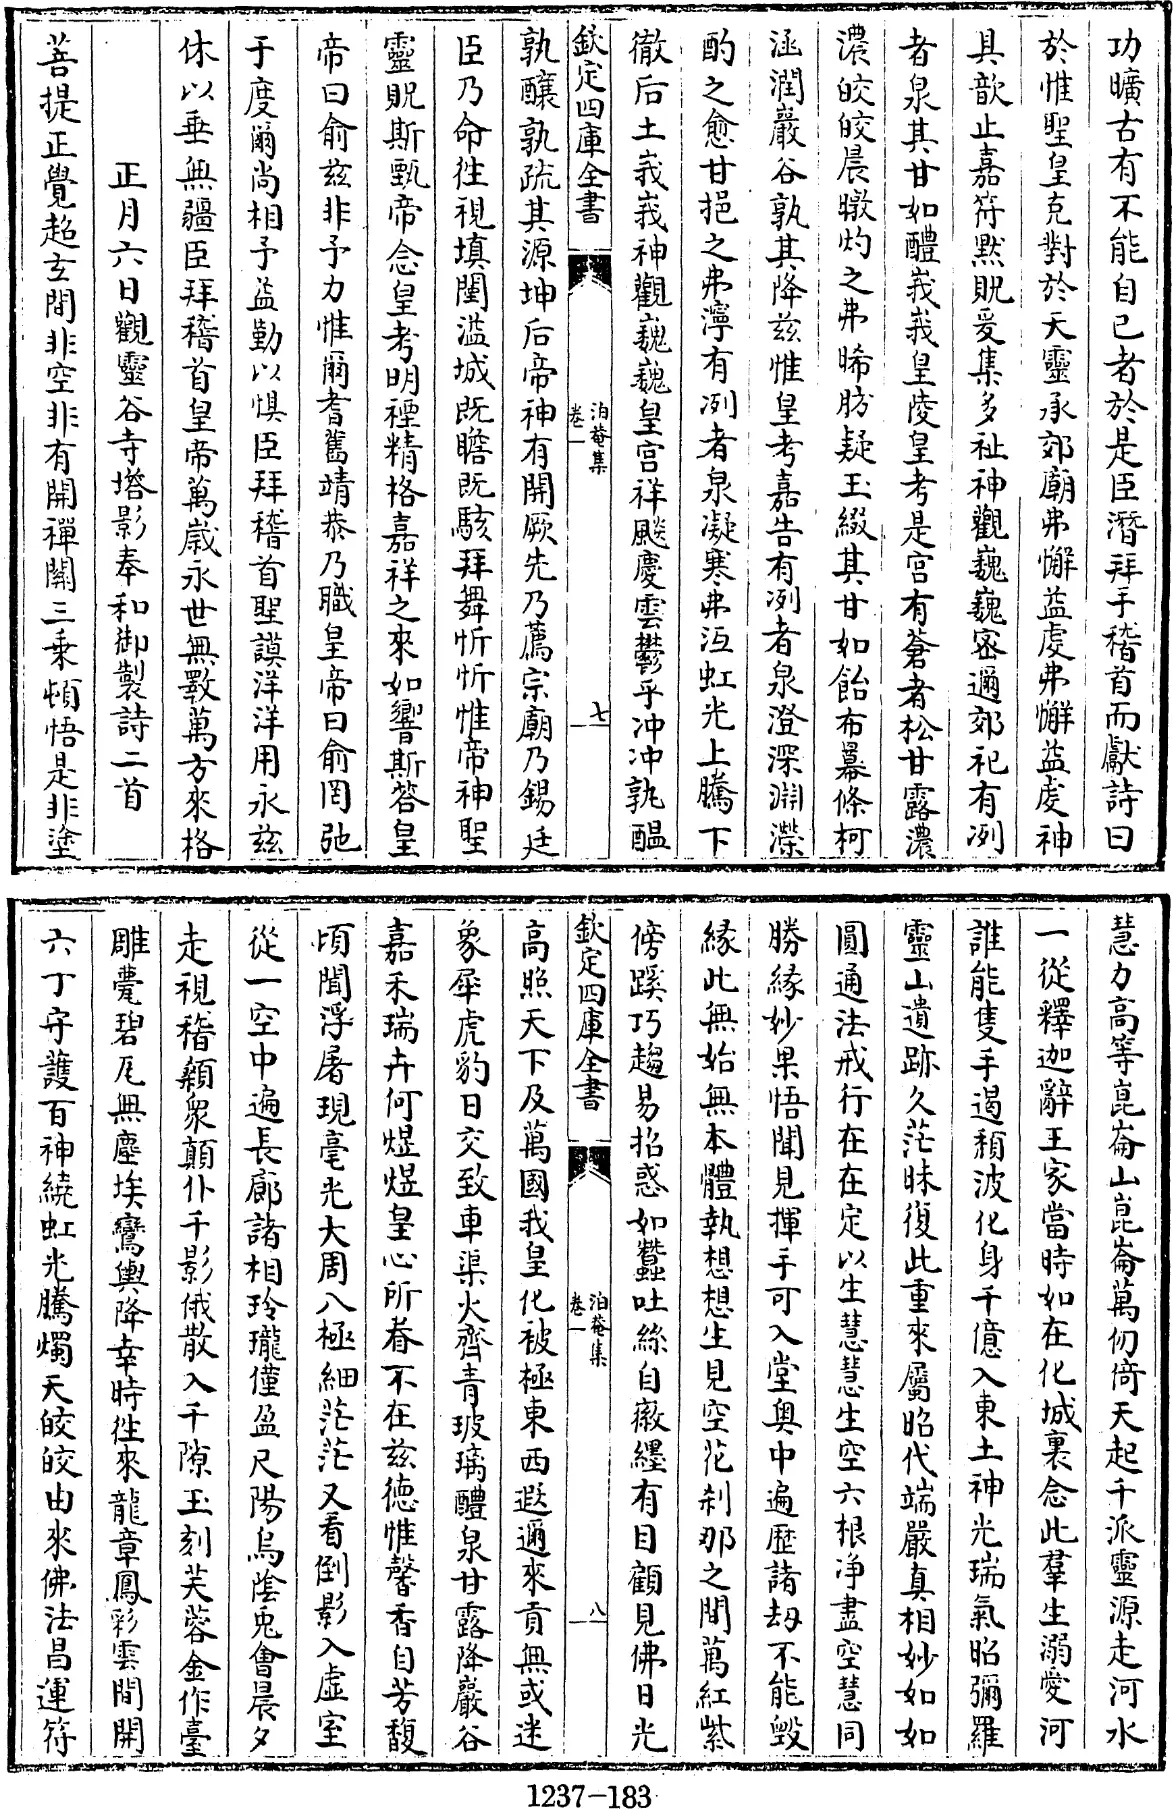 功曠古有不能自已者於是臣潛拜手稽首而獻詩曰
於惟聖皇克對於天靈承郊廟弗懈益虔弗懈益虔神
具歆止嘉符黙貺爰集多祉神觀巍巍宻邇郊祀有冽
者泉其甘如醴峩峩皇陵皇考是宫有蒼者松甘露濃
濃皎皎晨暾灼之弗晞肪疑玉綴其甘如飴布幕條柯
涵潤巖谷孰其降兹惟皇考嘉告有冽者泉澄深淵瀠
酌之愈甘挹之弗濘有冽者泉凝寒弗沍虹光上騰下
徹后土峩峩神觀巍巍皇宫祥飈慶雲鬱乎冲冲孰醖
欽定四庫全書
泊菴集
卷一
七
孰釀孰疏其源坤后帝神有開厥先乃薦宗廟乃錫廷
臣乃命徃視填闉溢城既瞻既駭拜舞忻忻惟帝神聖
靈貺斯甄帝念皇考明禋精格嘉祥之來如響斯答皇
帝曰俞兹非予力惟爾耆舊靖恭乃職皇帝曰俞罔弛
于度爾尚相予益勤以惧臣拜稽首聖謨洋洋用永兹
休以垂無疆臣拜稽首皇帝萬歲永世無斁萬方來格
正月六日觀靈谷寺塔影奉和御製詩二首
菩提正覺超玄間非空非有開禪關三乗頓悟是非塗
慧力高等崑崙山崑崙萬仞倚天起千派靈源走河水
一從釋迦辭王家當時如在化城裏念此羣生溺愛河
誰能隻手遏頹波化身千億入東土神光瑞氣昭彌羅
靈山遺跡久茫昧復此重來屬昭代端嚴真相妙如如
圓通法戒行在在定以生慧慧生空六根净盡空慧同
勝緣妙果悟聞見揮手可入堂奥中遍歴諸刼不能毁
縁此無始無本體執想想生見空花刹那之間萬紅紫
傍蹊巧趨易招惑如蠶吐絲自㣲纆有目顧見佛日光
欽定四庫全書
泊菴集
卷一
八
高照天下及萬國我皇化被極東西遐邇來貢無或迷
象犀虎豹日交致車渠火齊青玻瓈醴泉甘露降巖谷
嘉禾瑞卉何煜煜皇心所眷不在兹德惟馨香自芳馥
頃聞浮屠現毫光大周八極細茫茫又看倒影入虚室
從一空中遍長廊諸相玲瓏僅盈尺陽烏陰兎㑹晨夕
走視稽顙衆顛仆千影俄散入千隙玉刻芙蓉金作臺
雕甍碧瓦無塵埃鸞輿降幸時徃來龍章鳳彩雲間開
六丁守護百神繞虹光騰燭天皎皎由來佛法昌運符
1237-183